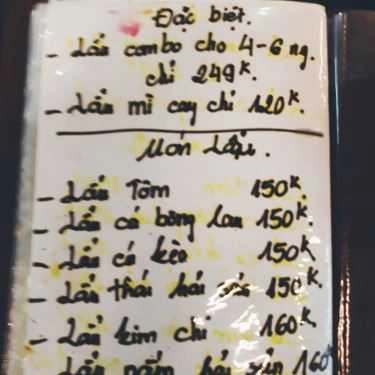 Đặc biệt.
- Lẩu combo cho 4-6 ng.
chỉ 249K.
- Lẩu mì cay chỉ 120K.
Món Lẩu.
- Lẩu Tôm 150K.
- Lẩu cá bông lau 150K.
- Lẩu cá kèo 150K
- Lẩu thái hải sản 150K.
- Lẩu kim chi 160K.
Lẩu nấm hải sản 160K